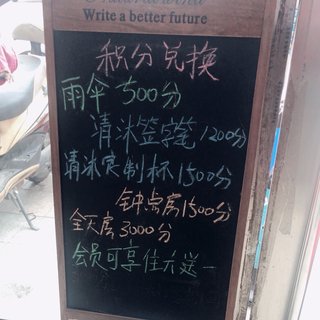 Write a better future
积分兑换
雨伞 500分
清沐签字笔 1200分
清沐定制杯 1500分
钟点房 1500分
全天房 3000分
会员可享住六送一